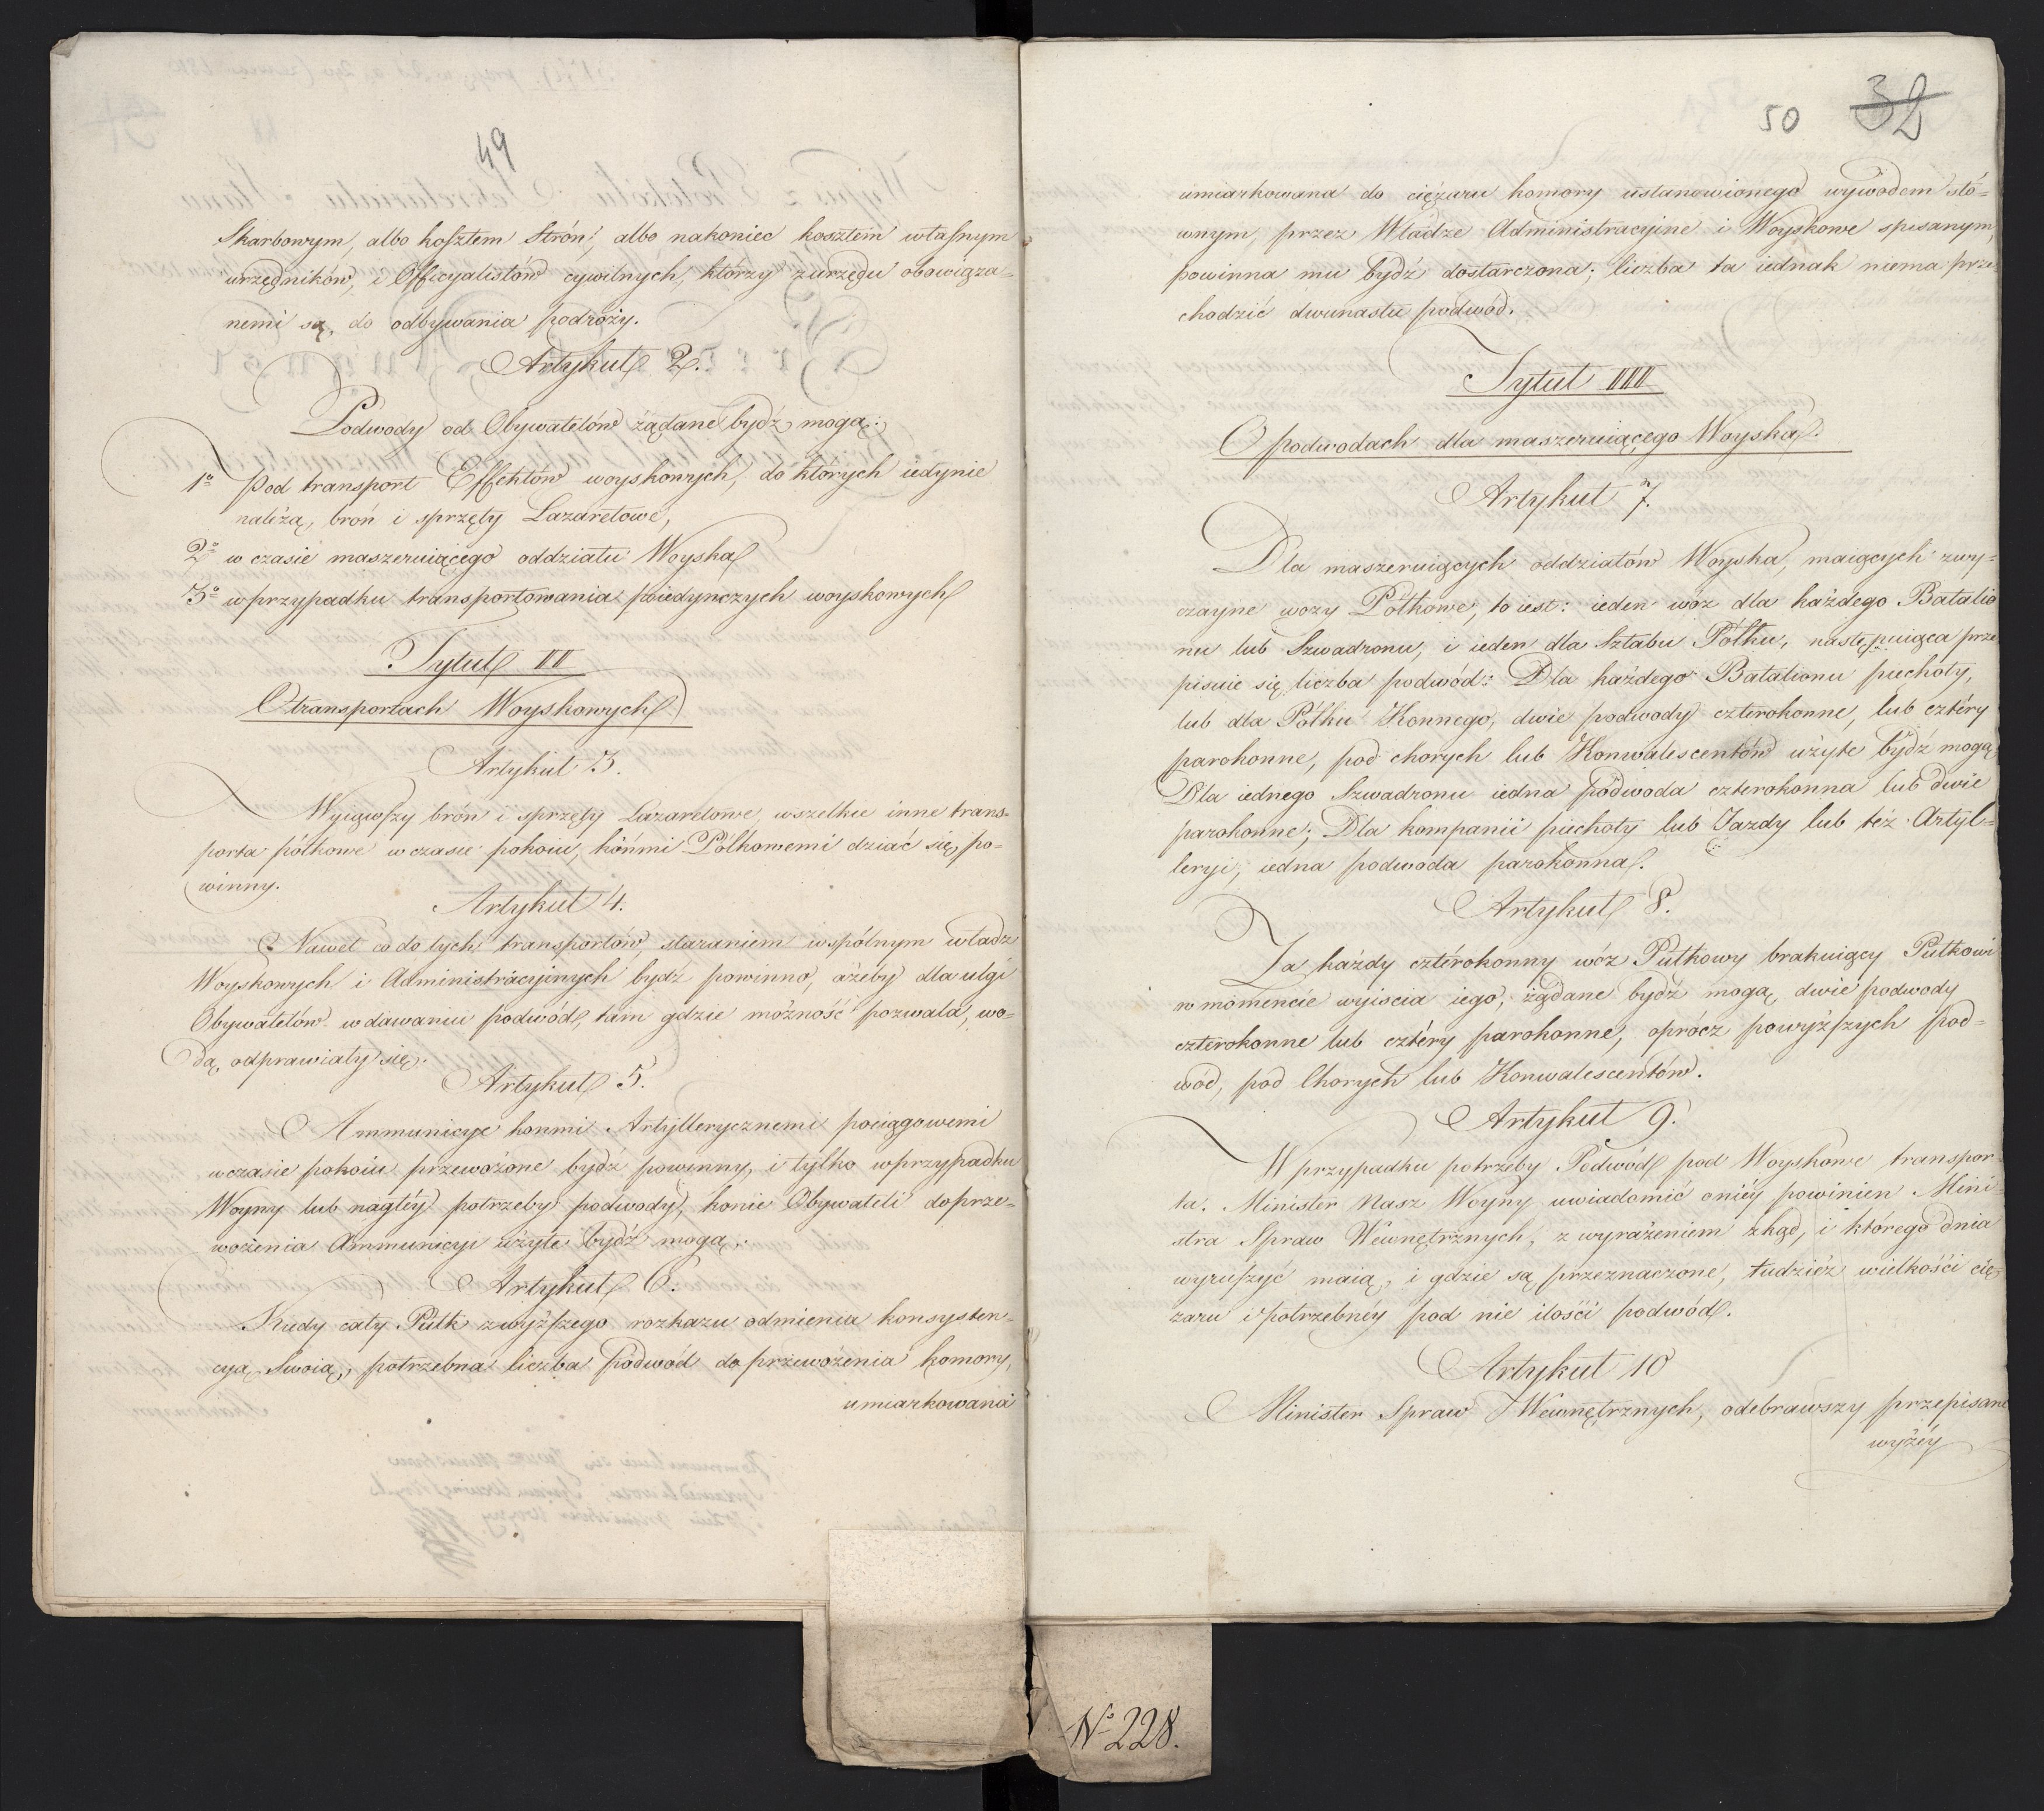 49
Skarbowym, albo kosztem Strón, albo nakoniec kosztem własnym
urzędników, i Officyalistów cywilnych, którzy z urzędu obowiąza-
nemi są, do odbywania podroży.
Artykuł 2.
Podwody od Obywatelów żądane bydź mogą:
1o Pod transport Effektów woyskowych, do których iedynie
naliżą, broń i sprzęty Lazaretowe,
2o w czasie maszeruiącego oddziału Woyska
3o w przypadku transportowania poiedynczych woyskowych
Tytuł II
O transportach Woyskowych
Artykuł 3.
Wyiąwszy broń i sprzęty Lazaretowe, wszelkie inne trans-
porta pólkowe w czasie pokoiu, końmi Pólkowemi dziać się po-
winny.
Artykuł 4.
Nawet co do tych transportów, staraniem wspólnym władz
Woyskowych i Administracyinych bydź powinno, ażeby dla ulgi
Obywatelów w dawaniu podwód, tam gdzie możność pozwala, wo-
dą, odprawiały się.
Artykuł 5.
Ammunicye konmi Artyllerycznemi pociągowemi
w czasie pokoiu przewożone bydź powinny, i tylko w przypadku
Woyny lub nagłéy potrzeby podwody, konie Obywateli do prze-
wożenia Ammunicyi użyte bydź mogą.
Artykuł 6.
Kiedy cały Pułk z wyższego rozkazu odmienia konsysten-
cyą Swoią, potrzebna liczba podwód do przewożenia komory,
umiarkowana
50 32
umiarkowana do ciężaru komory ustanowionego wywodem sło-
wnym, przez Władze Administracyine i Woyskowe spisanym,
powinna mu bydź dostarczona; liczba ta iednak niema prze-
chodzić dwunastu podwód.
Tytuł III
O podwodach dla maszeruiącego Woyska.
Artykuł 7.
Dla maszeruiących oddziałów Woyska, maiących zwy-
czayne wozy Półkowe, to iest: ieden wóz dla każdego Batalio
nu lub Szwadronu, i ieden dla Sztabu Półku, następuiąca prze
pisuie się liczba podwód: Dla każdego Batalionu piechoty,
lub dla Półku Konnego, dwie podwody czterokonne, lub cztéry
parokonne, pod chorych lub Konwalescentów użyte bydź mogą
Dla iednego Szwadronu iedna podwoda czterokonna lub dwie
parokonne; Dla kompanii piechoty lub Jazdy lub też Artyl-
leryi, iedna podwoda parokonna.
Artykuł 8.
Za każdy cztérokonny wóz Pułkowy brakuiący Pułkowi
w momencie wyiscia iego, żądane bydź mogą, dwie podwody
czterokonne lub cztéry parokonne, oprócz powyższych pod-
wód, pod Chorych lub Konwalescentów.
Artykuł 9.
W przypadku potrzeby Podwód pod Woyskowe transpor-
ta. Minister Nasz Woyny uwiadomić oniéy powinien Mini-
stra Spraw Wewnętrznych, z wyrażeniem zkąd, i którego dnia
wyruszyć maią, i gdzie są przeznaczone, tudzież wielkości cię-
żaru i potrzebnéy pod nie ilości podwód.
Artykuł 10
Minister Spraw Wewnętrznych, odebrawszy przepisane
wyżéy
No 228.